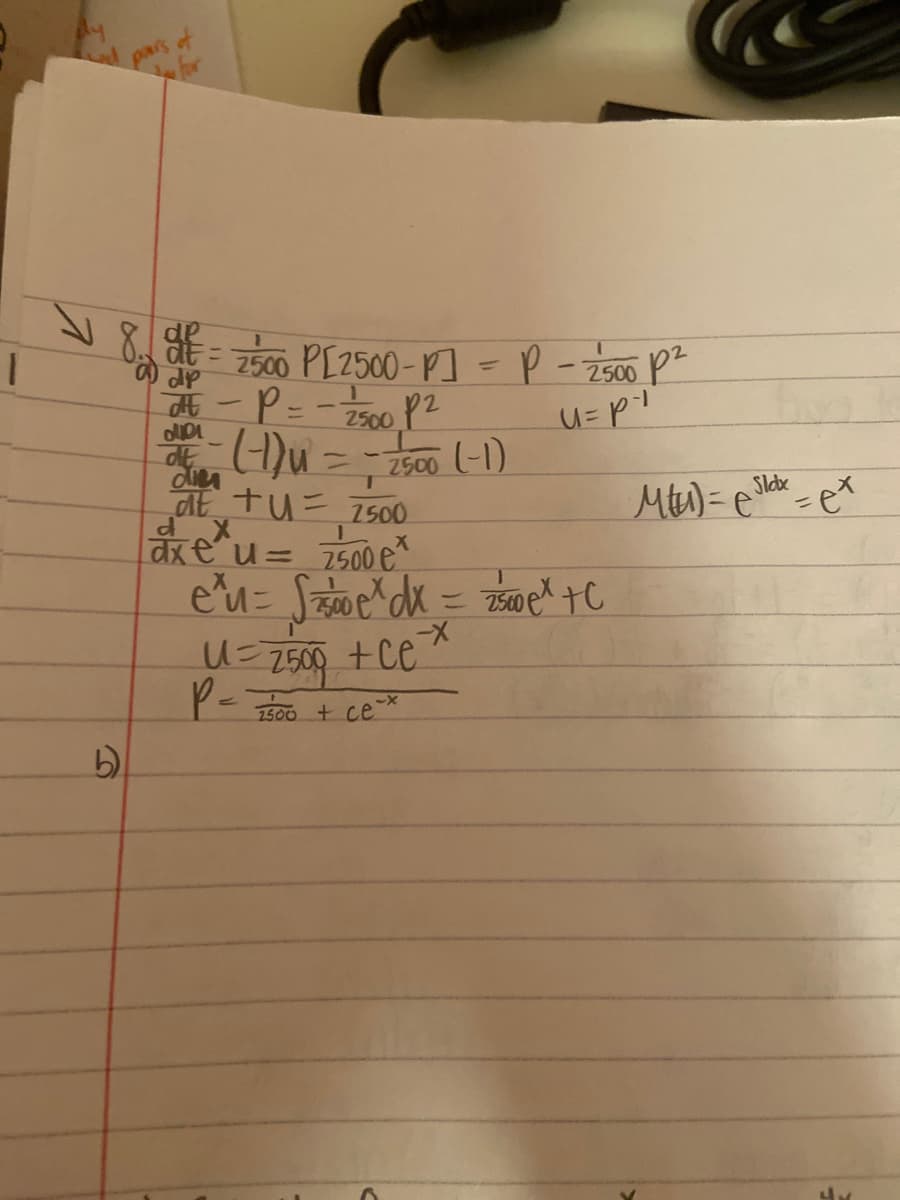 pairs of
for
8. dP/dt = 1/2500 P[2500-P] = P - 1/2500 P²
a) dP/dt - P = - 1/2500 P² u = P⁻¹
du/dt - (-1)u = - 1/2500 (-1)
du/dt + u = 1/2500 M(u) = e^∫1dx = e^x
d/dx e^x u = 1/2500 e^x
e^x u = ∫ 1/2500 e^x dx = 1/2500 e^x + C
u = 1/2500 + ce^-x
P = 1/(1/2500 + ce^-x)
b)